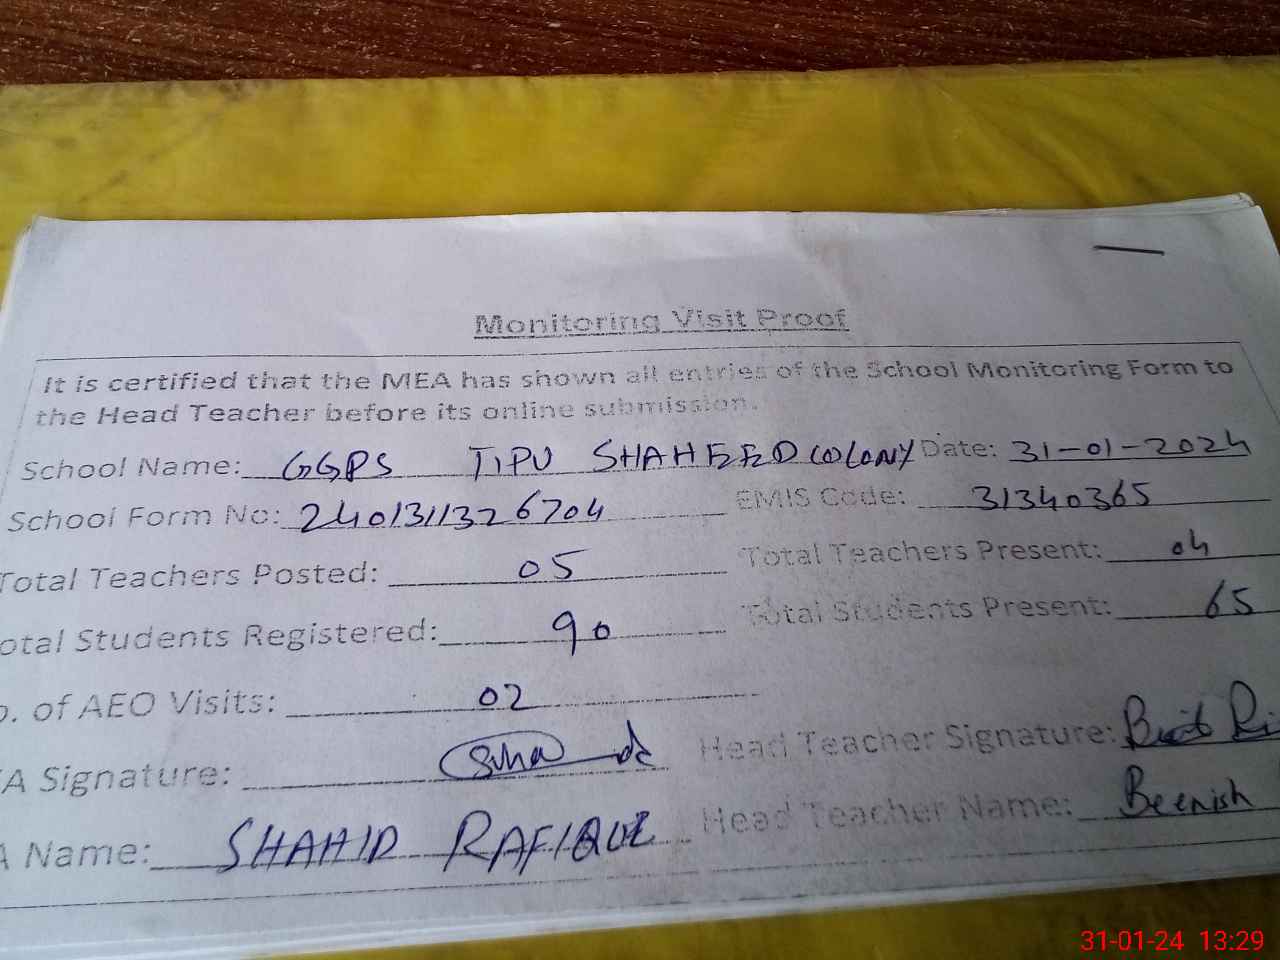 Monitoring Visit Proof
It is certified that the MEA has shown all entries of the School Monitoring Form to
the Head Teacher before its online submission.
School Name: GGPS TIPU SHAHEED COLONY Date: 31-01-2024
School Form No: 2401311326704 EMIS Code: 31340365
Total Teachers Posted: 05 Total Teachers Present: 04
otal Students Registered: 90 Total Students Present: 65
o. of AEO Visits: 02
A Signature: Head Teacher Signature:
A Name: SHAHID RAFIQUE Head Teacher Name: Beenish
31-01-24 13:29